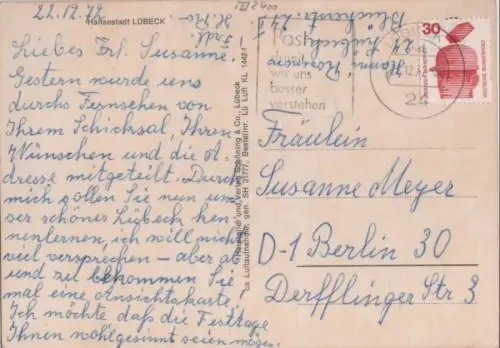 22.12.72
Hansestadt LÜBECK
Liebes Frl. Susanne!
Gestern wurde uns
durchs Fernsehen von
Ihrem Schicksal, Ihren
Wünschen und die A-
dresse mitgeteilt. Durch
mich sollen Sie nun un-
ser schönes Lübeck ken-
nenlernen, ich will nicht
viel versprechen – aber ab
und zu bekommen Sie
mal eine Ansichtskarte!
Ich möchte daß die Festtage
Ihnen wohlgesinnt seien mögen.
Verlag Schöning & Co., Lübeck
Luftaufnahme, gen. SH 31777, Bestellnr. Lü Luft KL 1442-1
Lübeck
wir uns
besser
verstehen
30
DEUTSCHE BUNDESPOST
24
Fräulein
Susanne Meyer
D-1 Berlin 30
Derfflinger Str 3